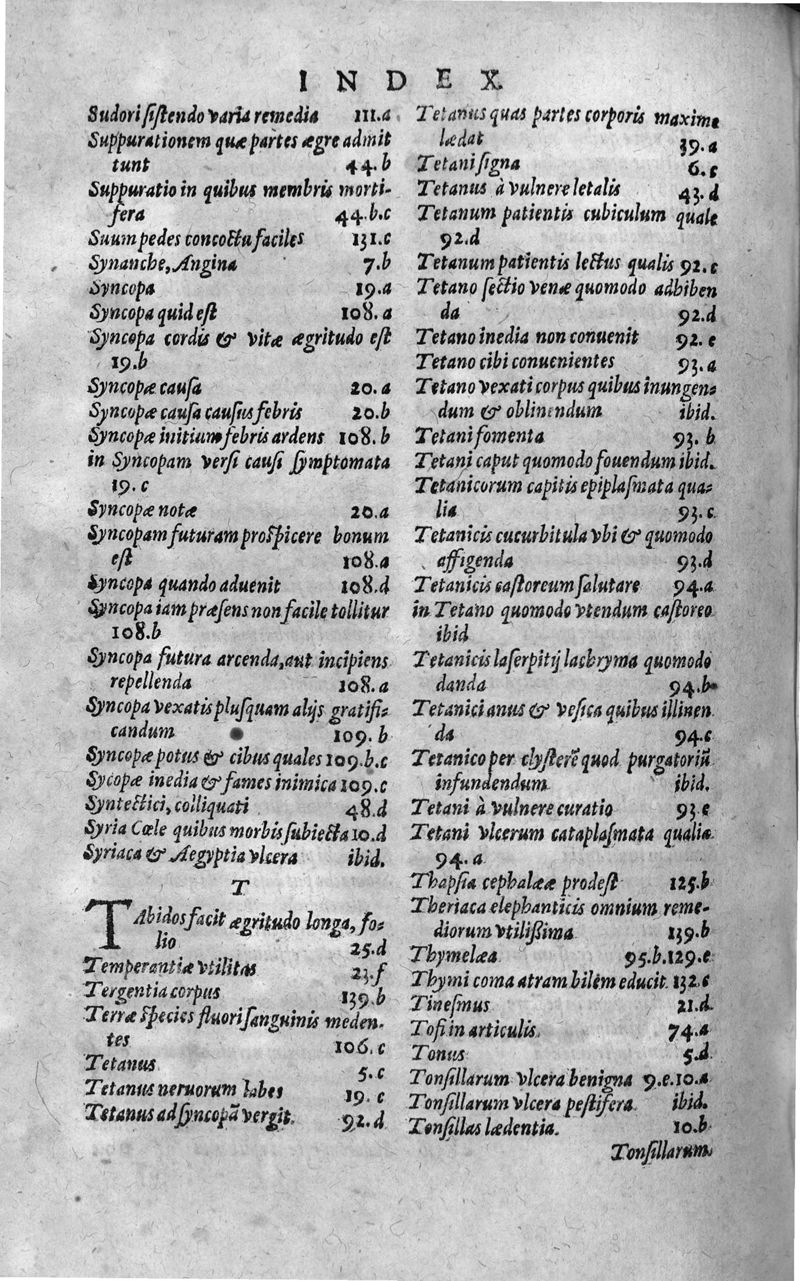 INDEX
Sudori sistendo varia remedia 111.a
Suppurationem quæ partes ægre admit
tunt 44.b
Suppuratio in quibus membris morti-
fera 44.b.c
Suum pedes concoctu faciles 131.c
Synanche, Angina 7.b
Syncopa 19.a
Syncopa quid est 108.a
Syncopa cordis & vitæ ægritudo est
19.b
Syncopæ causa 20.a
Syncopæ causa causus febris 20.b
Syncopæ initium febris ardens 108.b
in Syncopam versi causi symptomata
19.c
Syncopæ notæ 20.a
Syncopam futuram prospicere bonum
est 108.a
Syncopa quando aduenit 108.d
Syncopa iam præsens non facile tollitur
108.b
Syncopa futura arcenda, aut incipiens
repellenda 108.a
Syncopa vexatis plusquam alijs gratifi-
candum 109.b
Syncopæ potus & cibus quales 109.b.c
Sycopæ inedia & fames inimica 109.c
Syntectici, colliquati 48.d
Syria Cœle quibus morbis subiecta 10.d
Syriaca & Aegyptia vlcera ibid.
T
TAbidos facit ægritudo longa, fo-
lio 25.d
Temperantiæ vtilitas 23.f
Tergentia corpus 139.b
Terræ species fluori sanguinis meden-
tes 106.c
Tetanus 5.c
Tetanus neruorum labes 19.c
Tetanus ad syncopã vergit. 92.d
Tetanus quas partes corporis maxime
lædat 39.a
Tetani signa 6.c
Tetanus à vulnere letalis 43.d
Tetanum patientis cubiculum quale
92.d
Tetanum patientis lectus qualis 92.c
Tetano sectio venæ quomodo adhiben
da 92.d
Tetano inedia non conuenit 92.e
Tetano cibi conuenientes 93.a
Tetano vexati corpus quibus inungen-
dum & oblinendum ibid.
Tetani fomenta 93.b
Tetani caput quomodo fouendum ibid.
Tetanicorum capitis epiplasmata qua-
lia 93.c.
Tetanicis cucurbitula vbi & quomodo
affigenda 93.d
Tetanicis castoreum salutare 94.a
in Tetano quomodo vtendum castoreo
ibid
Tetanicis laserpitij lachryma quomodo
danda 94.b
Tetanici anus & vesica quibus illinen
da 94.c
Tetanico per clysterẽ quod purgatoriũ
infundendum ibid.
Tetani à vulnere curatio 93.e
Tetani vlcerum cataplasmata qualia
94.a
Thapsia cephalææ prodest 125.b
Theriaca elephanticis omnium reme-
diorum vtilissima 139.b
Thymelæa 95.b.129.e
Thymi coma atram bilem educit 132.c
Tinesmus 21.d
Tofi in articulis 74.a
Tonus 5.d
Tonsillarum vlcera benigna 9.e.10.a
Tonsillarum vlcera pestifera ibid.
Tonsillas lædentia. 10.b
Tonsillarum